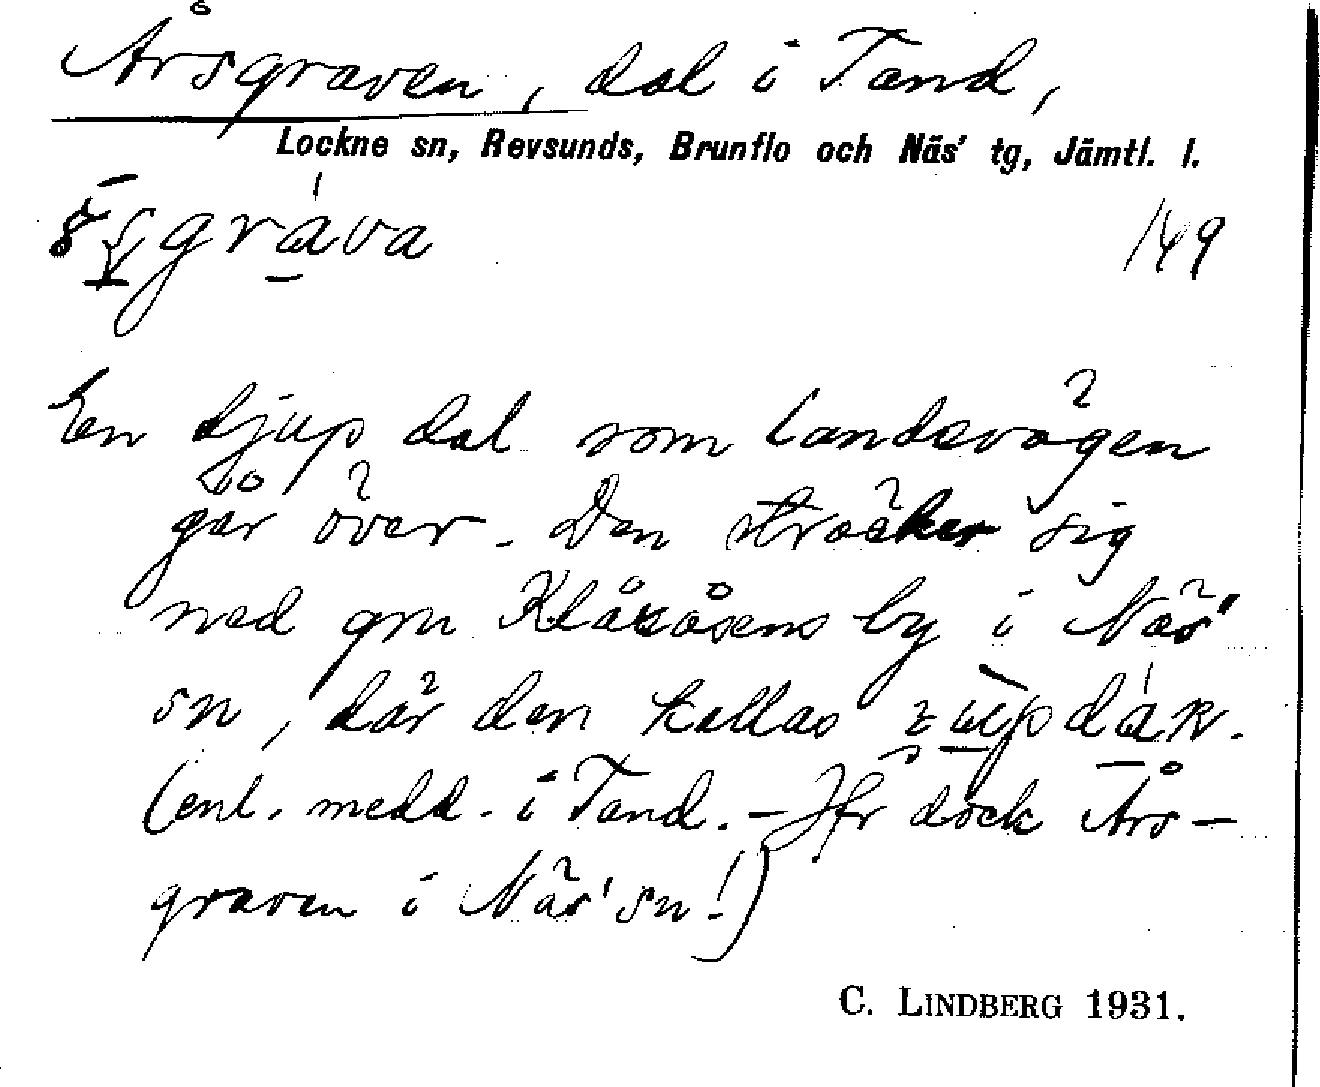 Årsgraven, dal i Tand,
Lockne sn, Revsunds, Brunflo och Näs' tg, Jämtl. l.
149
En djup dal som landsvägen
går över. Den sträcker sig
ned gm Klåxåsens by i Näs'
sn, där den kallas
(enl. medd. i Tand. – Jfr dock Års-
graven i Näs' sn!)
C. LINDBERG 1931.